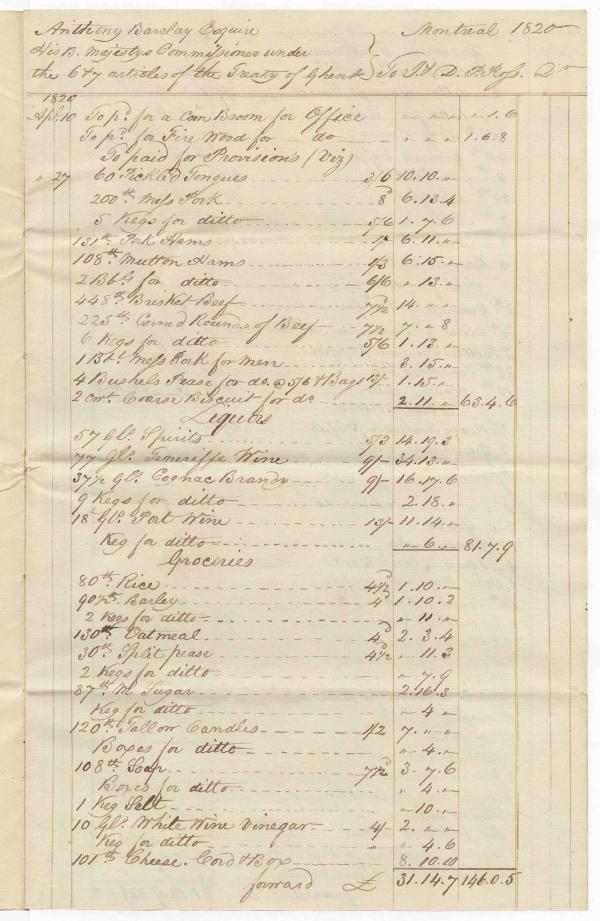 Anthony Barclay Esquire Montreal 1820
His B. Majestys Commissioner under
the 6 & 7 articles of the Treaty of Ghent } To D. Ross. Dr
1820
Apl. 10 To pd. for a Corn Broom for Office " " " " 1.6
To pd. for Fire Wood for do " " " 1.6.8
To paid for Provisions (Viz)
" 27 60 Pickled Tongues 3/6 10.10."
200 lb. Mess Pork 8d 6.13.4
5 Kegs for ditto 5/6 1.7.6
131 lb. Pork Hams 1/- 6.11."
108 lb. Mutton Hams 1/3 6.15."
2 Bbls for ditto 6/6 " 13."
448 lb. Brisket Beef 7½ 14. " "
225 lb. Corned Rounds of Beef 7½ 7. " 8
6 Kegs for ditto 5/6 1.13."
1 Bbl. Mess Pork for men 3.15."
4 Bushels Pease for do. @ 5/6 & Bags 13/- 1.15."
2 cwt. Coarse Biscuit for do 2.11." 63.4.6
Liquors
57 Gls. Spirits 5/3 14.19.3
77 Gls. Teneriffe Wine 9/- 34.13."
37½ Gls. Cognac Brandy 9/- 16.17.6
9 Kegs for ditto 2.18."
18 Gls. Port Wine 13/- 11.14."
Keg for ditto " 6." 81.7.9
Groceries
80 lb. Rice 4½d 1.10."
90½ lb. Barley 4d 1.10.2
2 Kegs for ditto " 11."
130 lb. Oatmeal 4d 2.3.4
30 lb. Split pease 4½ " 11.3
2 Kegs for ditto " 7.9
87 lb. M Sugar 2.16.3
Keg for ditto " 4 "
120 lb. Tallow Candles 1/2 7. " "
Boxes for ditto " 4."
108 lb. Soap 7½d 3.7.6
Boxes for ditto " 4."
1 Keg Salt " 10."
10 Gls. White Wine Vinegar 4/- 2. " "
Keg for ditto " 4.6
101 lb Cheese. Cord & Box 8.10.10
forward £ 31.14.7 146.0.5